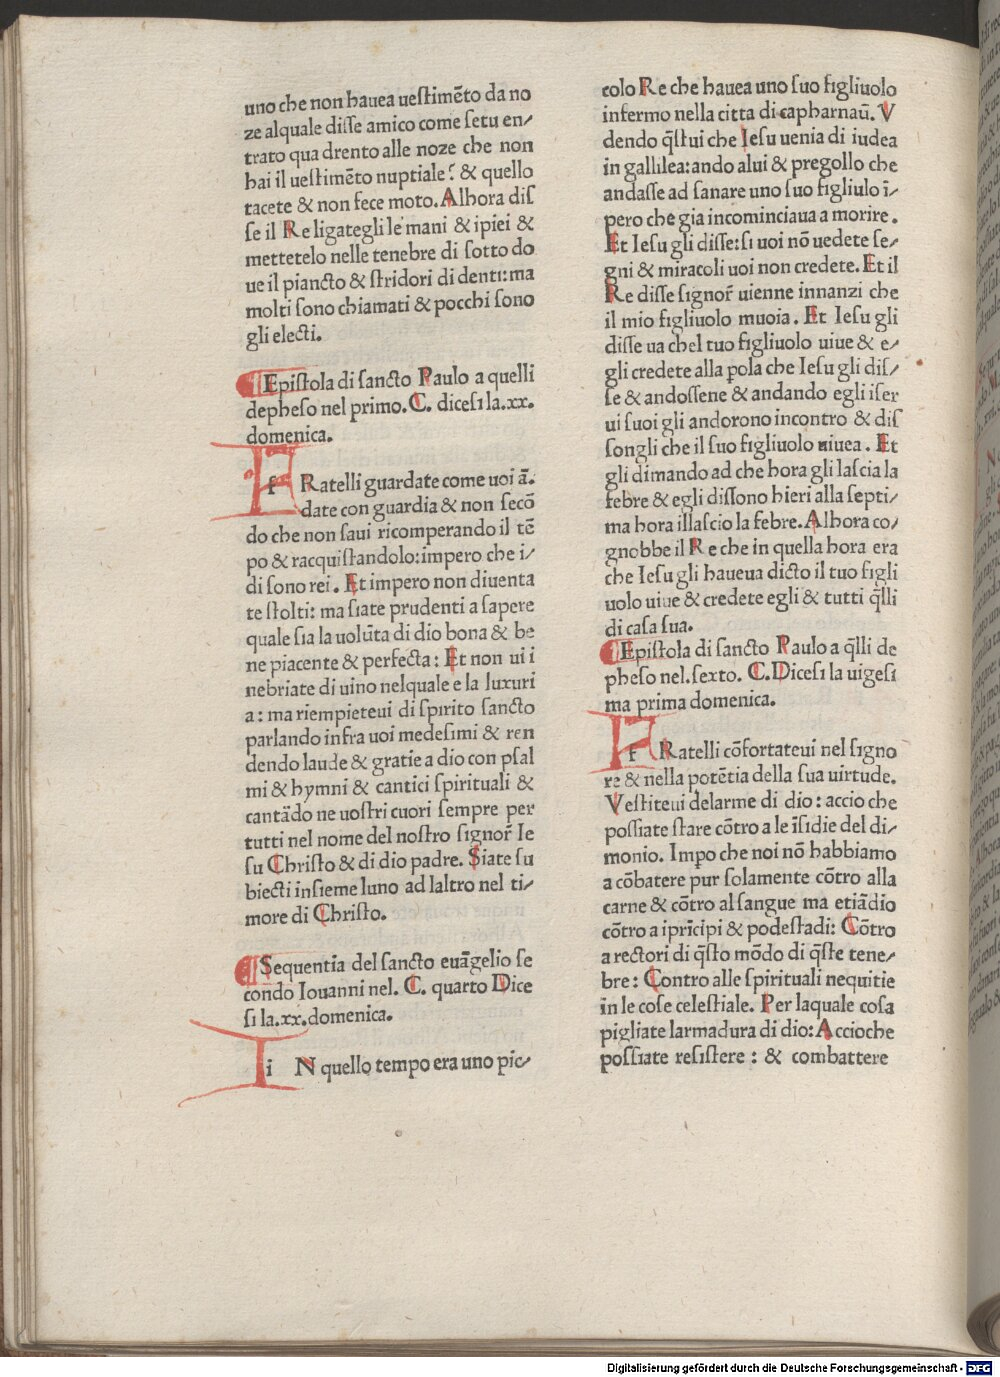 uno che non hauea uestimēto da no
ze alquale disse amico come setu en/
trato qua drento alle noze che non
hai il uestimēto nuptiale? & quello
tacete & non fece moto. Alhora dis
se il Re ligategli le mani & ipiei &
mettetelo nelle tenebre di sotto do
ue il piancto & stridori di denti: ma
molti sono chiamati & pocchi sono
gli electi.
¶ Epistola di sancto Paulo a quelli
depheso nel primo. C. dicesi la.xx.
domenica.
f Ratelli guardate come uoi ā.
date con guardia & non secō
do che non saui ricomperando il tē
po & racquistandolo: impero che i/
di sono rei. Et impero non diuenta
te stolti: ma siate prudenti a sapere
quale sia la uolūta di dio bona & be
ne piacente & perfecta: Et non ui i
nebriate di uino nelquale e la luxuri
a: ma riempieteui di spirito sancto
parlando infra uoi medesimi & ren
dendo laude & gratie a dio con psal
mi & hymni & cantici spirituali &
cantādo ne uostri cuori sempre per
tutti nel nome del nostro signor̄ Ie
su Christo & di dio padre. Siate su
biecti insieme luno ad laltro nel ti/
more di Christo.
¶ Sequentia del sancto euāgelio se
condo Iouanni nel. C. quarto Dice
si la.xx.domenica.
i N quello tempo era uno pic/
colo Re che hauea uno suo figliuolo
infermo nella citta di capharnaū. V
dendo q̄stui che Iesu uenia di iudea
in gallilea: ando alui & pregollo che
andasse ad sanare uno suo figliulo ī/
pero che gia incominciaua a morire.
Et Iesu gli disse: si uoi nō uedete se/
gni & miracoli uoi non credete. Et il
Re disse signor̄ uienne innanzi che
il mio figliuolo muoia. Et Iesu gli
disse ua chel tuo figliuolo uiue & e/
gli credete alla ꝑola che Iesu gli dis/
se & andossene & andando egli iser
ui suoi gli andorono incontro & dis
songli che il suo figliuolo uiuea. Et
gli dimando ad che hora gli lascia la
febre & egli dissono hieri alla septi/
ma hora illascio la febre. Alhora co/
gnobbe il Re che in quella hora era
che Iesu gli haueua dicto il tuo figli
uolo uiue & credete egli & tutti q̄lli
di casa sua.
¶ Epistola di sancto Paulo a q̄lli de
pheso nel.sexto. C. Dicesi la uigesi
ma prima domenica.
f Ratelli cōfortateui nel signo
re & nella potētia della sua uirtude.
Vestiteui delarme di dio: accio che
possiate stare cōtro a le īsidie del di/
monio. Impo che noi nō habbiamo
a cōbatere pur solamente cōtro alla
carne & cōtro al sangue ma etiādio
cōtro a iprīcipi & podestadi: Cōtro
a rectori di q̄sto mōdo di q̄ste tene/
bre: Contro alle spirituali nequitie
in le cose celestiale. Per laquale cosa
pigliate larmadura di dio: Accioche
possiate resistere: & combattere
Digitalisierung gefördert durch die Deutsche Forschungsgemeinschaft - DFG